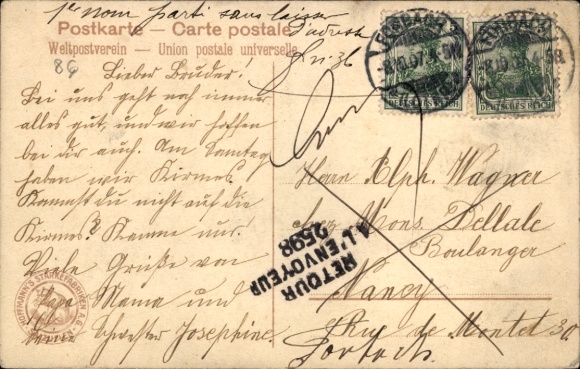 1er nom parti sans laisser
Postkarte — Carte postale
Weltpostverein — Union postale universelle
86
Lieber Bruder!
Bei uns geht noch immer
alles gut, und wir hoffen
bei dir auch. Am Samstag
haben wir Kirmes.
Kommst du nicht auf die
Kirmes? Komme nur.
Viele Grüße von
Papa Mama und
Schwester Josephine.
DEUTSCHES REICH
DEUTSCHES REICH
Herrn Alph. Wagner
chez Mons. Dellale
Boulanger
Nancy
Rue de Montet 30.
Forbach.
RETOUR
A L'ENVOYEUR
2598
HOFFMANN'S STÄRKEFABRIKEN A.G.